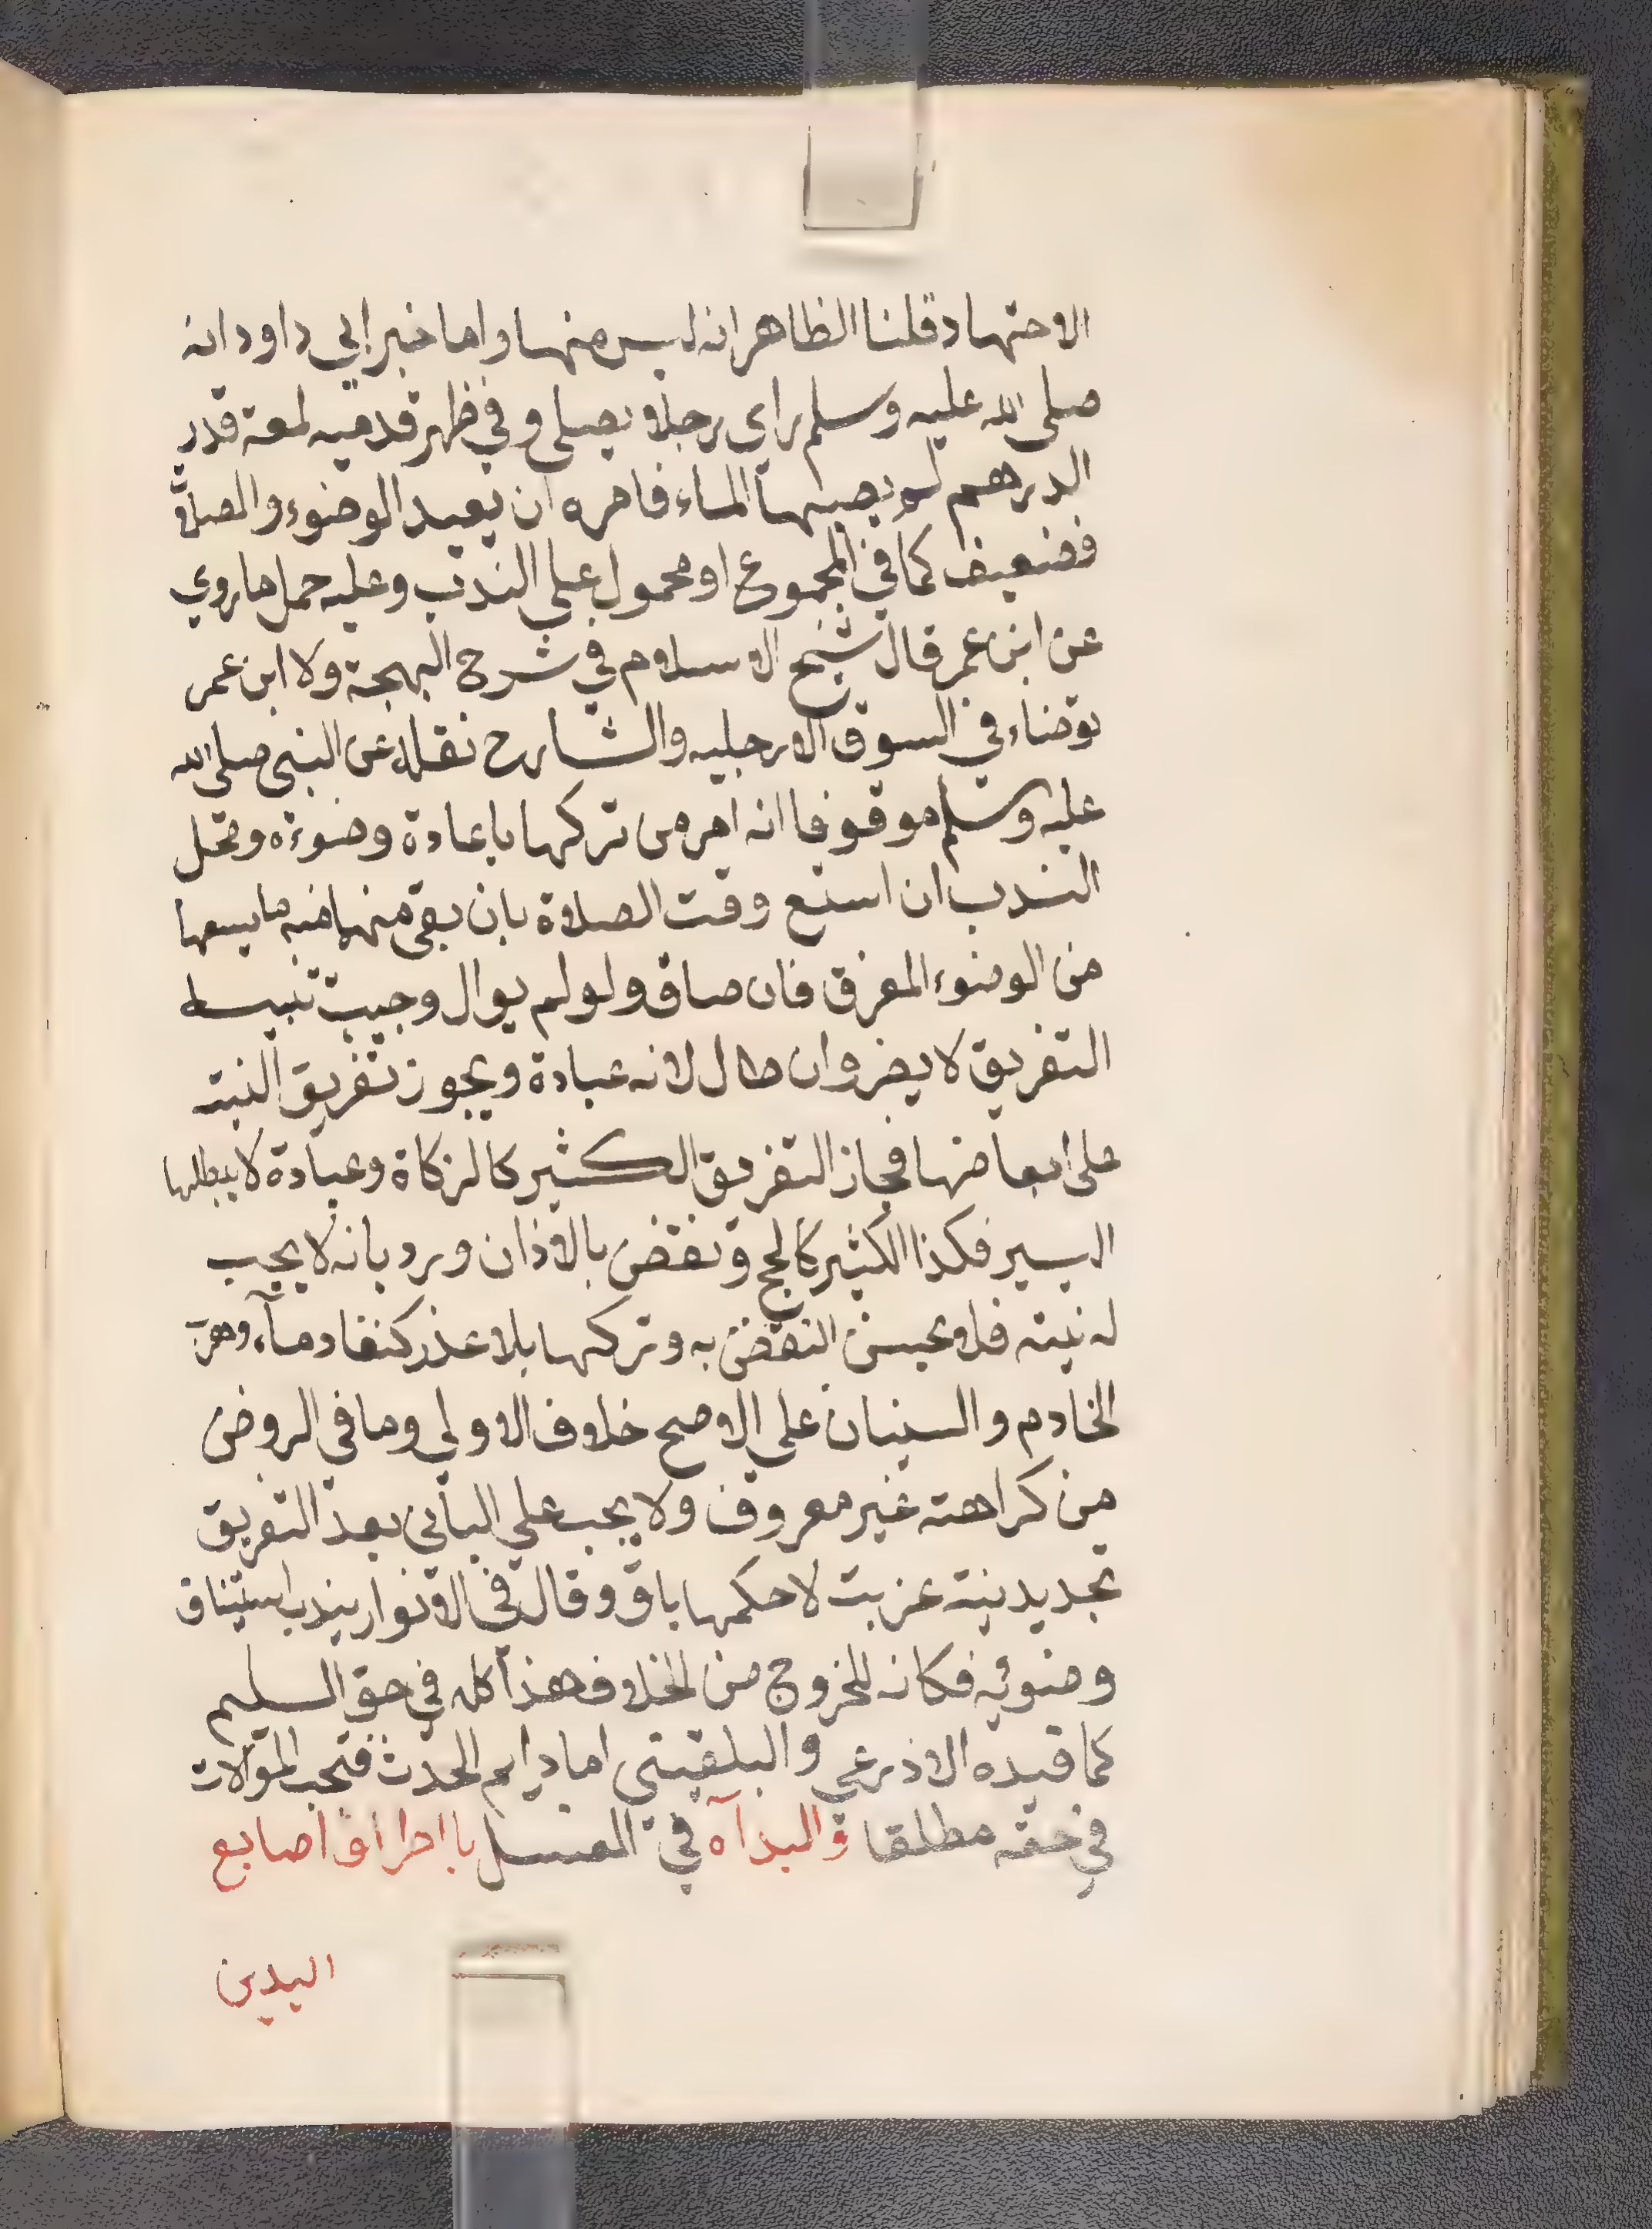 الاجتهاد قلنا الظاهر انه ليس منها واما خبر ابي داود انه
صلى الله عليه وسلم راى رجلا يصلى وفي ظهر قدميه لمعة قدر
الدرهم لم يصبها الماء فامره ان يعيد الوضوء والصلاة
فضعيف كما في المجموع او محمول على الندب وعليه حمل ما روي
عن ابن عمر قال شيخ الاسلام في شرح البهجة ولا ابن عمر
توضاء في السوق الا رجليه والشارح نقل عن النبى صلى الله
عليه وسلم موقوفا انه امر من تركها باعادة وضوءه ومحل
الندب ان اتسع وقت الصلاة بان بقى منها منه ما يسعها
من الوضوء المفرق فان ضاق ولو لم يوال وجبت تنبيه
التفريق لا يضر وان طال لانه عبادة ويجوز تفريق النية
على ابعاضها فجاز التفريق الكثير كالزكاة وعبادة لا يبطلها
اليسير فكذا الكثير كالحج ونقض بالاذان ورد بانه لا يجب
له نية فلا يحسن النقض به وتركها بلا عذر كنفاد ماء وهرب
الخادم والنسيان على الاصح خلاف الاولي وما في الروض
من كراهته غير معروف ولا يجب علي الباني بعد التفريق
تجديد نية عزبت لا حكمها باق وقال في الانوار يندب استيناف
وضوئه فكانه للخروج من الخلاف هذا كله في حق السليم
كما قيده الاذرعي والبلقيني اما دايم الحدث فتجب الموالات
في حقه مطلقا والبداه في الغسل با اطراف اصابع
اليدين